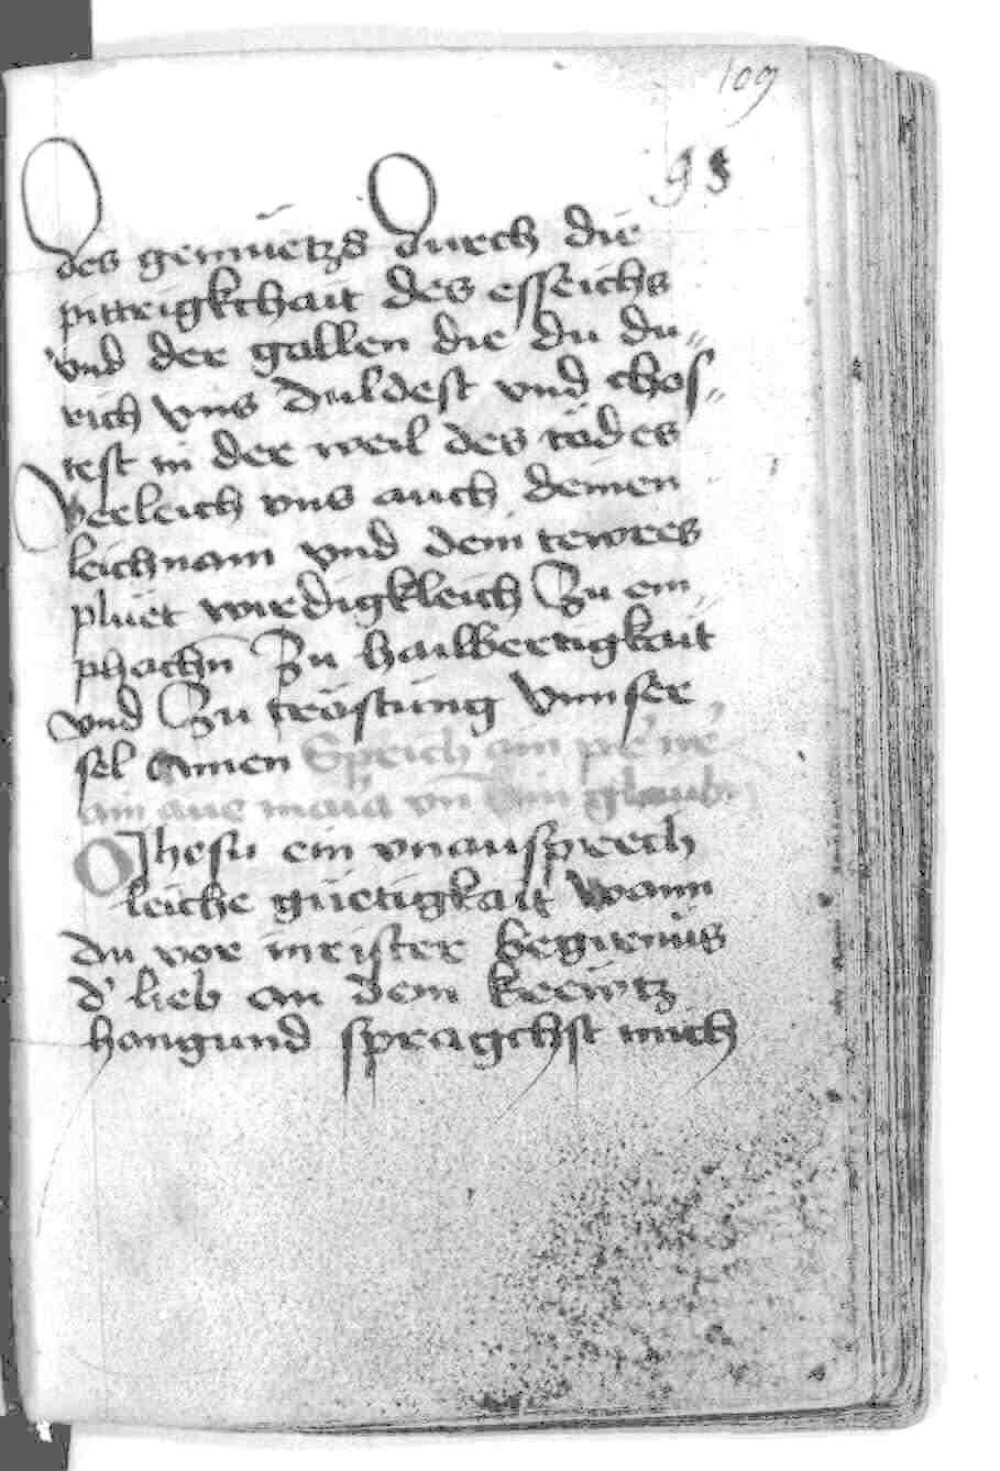 109
93
des gemüetzs durch die
pittrigkchait des esseichs
vnd der gallen die du du„
rich vns duldest vnd chos„
test in der weil des tödes
Verleich vns auch deinen
leichnam vnd dein tewres
plüet wirdigkleich Zu em„
phachn Zu hailbertigkait
vnd Zu tröstung vnnser
sel Amen Sprich ain
ain aue maria vn ain glaubn
O Jhesu ein vnaussprech
leiche güetigkait wann
du vor inrister begirnüs
d' lieb an dem krewtz
hangund spragchst mich